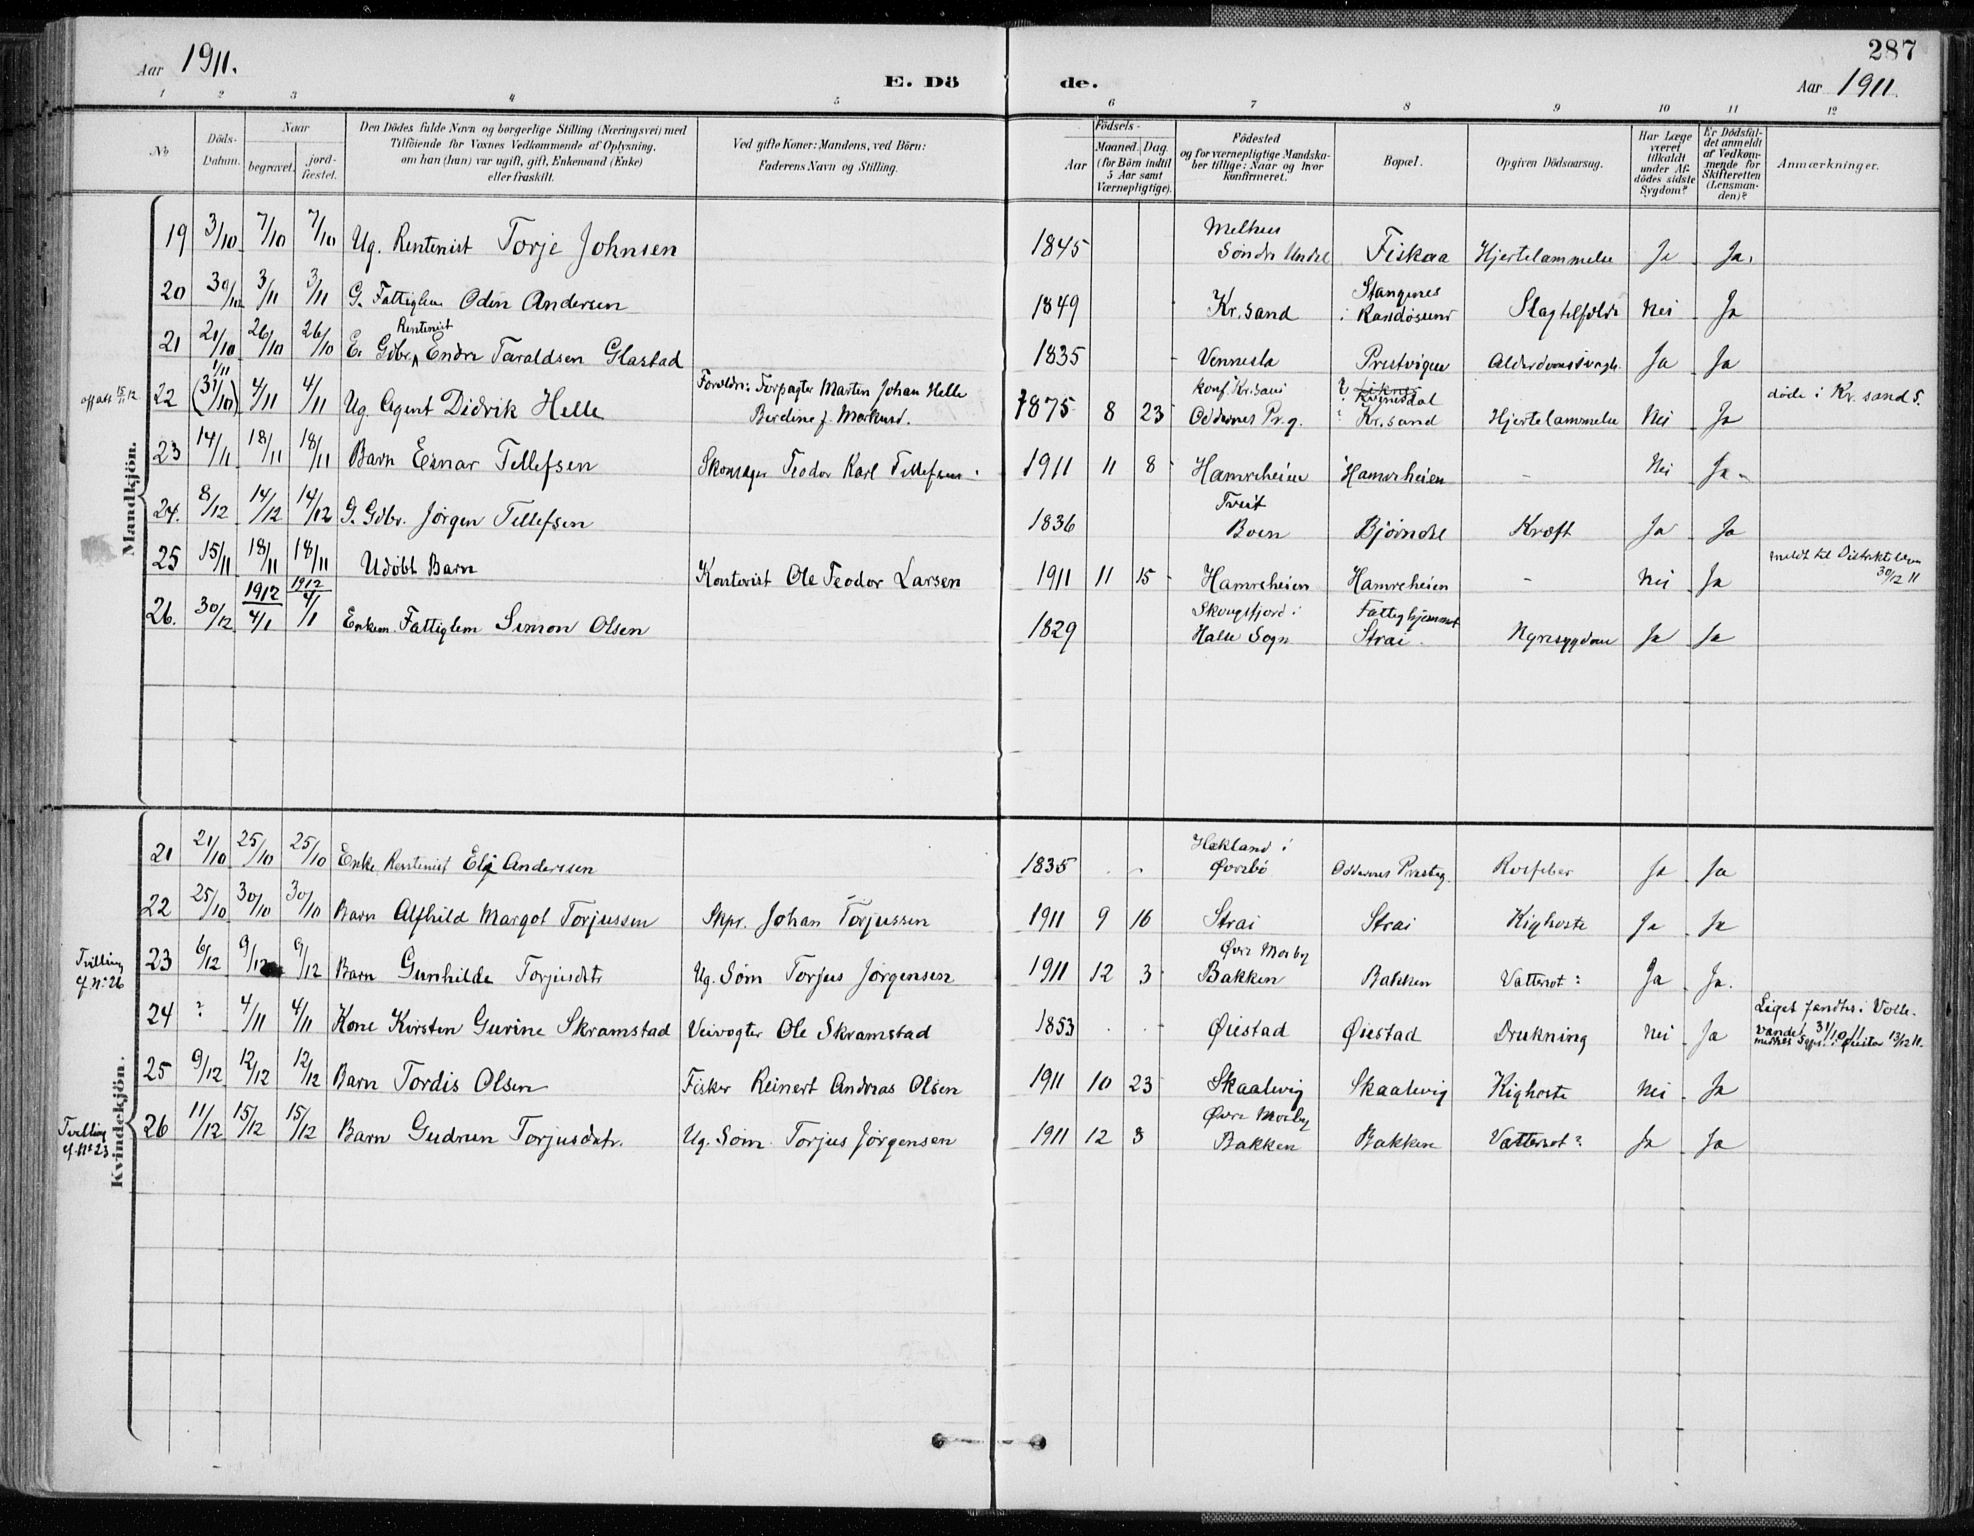 287
Aar 1911.
E. Dö
de.
Aar 1911.
1 2 3 4 5 6 7 8 9 10 11 12
No
Döds-Datum.
Naar
begravet.
jord-fæstet.
Den Dödes fulde Navn og borgerlige Stilling (Næringsvei) med
Tilföiende for Voxnes Vedkommende af Oplysning,
om han (hun) var ugift, gift, Enkemand (Enke)
eller fraskilt.
Ved gifte Koner: Mandens, ved Börn:
Faderens Navn og Stilling.
Födsels-
Aar
Maaned. Dag.
(for Börn indtil
5 Aar samt
Værnepligtige).
Födested
og for værnepligtige Mandska-
ber tillige: Naar og hvor
konfirmeret.
Bopæl.
Opgiven Dödsaarsag.
Har Læge
været
tilkaldt
under Af-
dödes sidste
Sygdom?
Er Dödsfal-
det anmeldt
af Vedkom-
mende for
Skifteretten
(Lensman-
den)?
Anmærkninger.
Mandkjön.
19 3/10 7/10 7/10 Ug. Rentenist Torje Johnsen 1845 Melhus Søndre Undal Fiskaa Hjertelammelse Ja Ja.
20 30/10 3/11 3/11 G. Fattiglem Odin Andersen 1849 Kr.sand Stangenes i Randøsund Slagtilfælde Nei Ja
21 21/10 26/10 26/10 E. Gdbr. Rentenist Endre Taraldsen Glastad 1835 Vennesla Prestvigen Alderdomssvagh. Ja Ja
22 1/11 (31/10) 4/11 4/11 Ug. Agent Didrik Helle Forældre: Forpagter Martin Johan Helle Berdine f. Markusd. 1875 8 23 konf. Kr.sand Oddernes Pr.g. ? Kvinesdal ? Kr.sand Hjertelammelse Nei Ja døde i Kr.sand S.
23 14/11 18/11 18/11 Barn Einar Tellefsen Skomager Teodor Karl Tellefsen 1911 11 8 Hamreheien Hamreheien - Nei Ja
24. 8/12 14/12 14/12 G. Gdbr. Jørgen Tellefsen 1836 Tveit Boen Bjørndal Kræft Ja Ja
25 15/11 18/11 18/11 Udøbt Barn Kontorist Ole Teodor Larsen 1911 11 15 Hamreheien Hamreheien - Nei Ja meldt til Distriktslægen 30/12 11
26. 30/12 1912 4/1 1912 4/1 Enkem. Fattiglem Simon Olsen 1829 Skougsfjord i Halse Sogn Fattighjemmet Strai Nyresygdom Ja Ja
Kvindekjön.
21 21/10 25/10 25/10 Enke Rentenist Eli Anderssen 1835 Hækland i Øvrebø Oddernes Presteg. Rosfeber Ja Ja
22 25/10 30/10 30/10 Barn Alfhild Margot Torjussen Skpr. Johan Torjussen 1911 9 16 Strai Strai Kighoste Ja Ja
Tvilling cf. No 26
23 6/12 9/12 9/12 Barn Gunhilde Torjusdtr Ug. Søm. Torjus Jørgensen 1911 12 3 Øvre Mosby Bakken Bakken Vattersot? Ja Ja.
24 ? 4/11 4/11 Kone Kirsten Gurine Skramstad Veivogter Ole Skramstad 1853 Øiestad Øiestad Drukning Nei Ja Liget fandtes i Volle-vandet 31/10 11
25 9/12 12/12 12/12 Barn Tordis Olsen Fisker Reinert Andreas Olsen 1911 10 23 Skaalevig Skaalevig Kighoste Nei Ja
Tvilling cf. No 23
26 11/12 15/12 15/12 Barn Gudrun Torjusdatr. Ug. Søm. Torjus Jørgensen 1911 12 3 Øvre Mosby Bakken Bakken Vattersot? Ja Ja